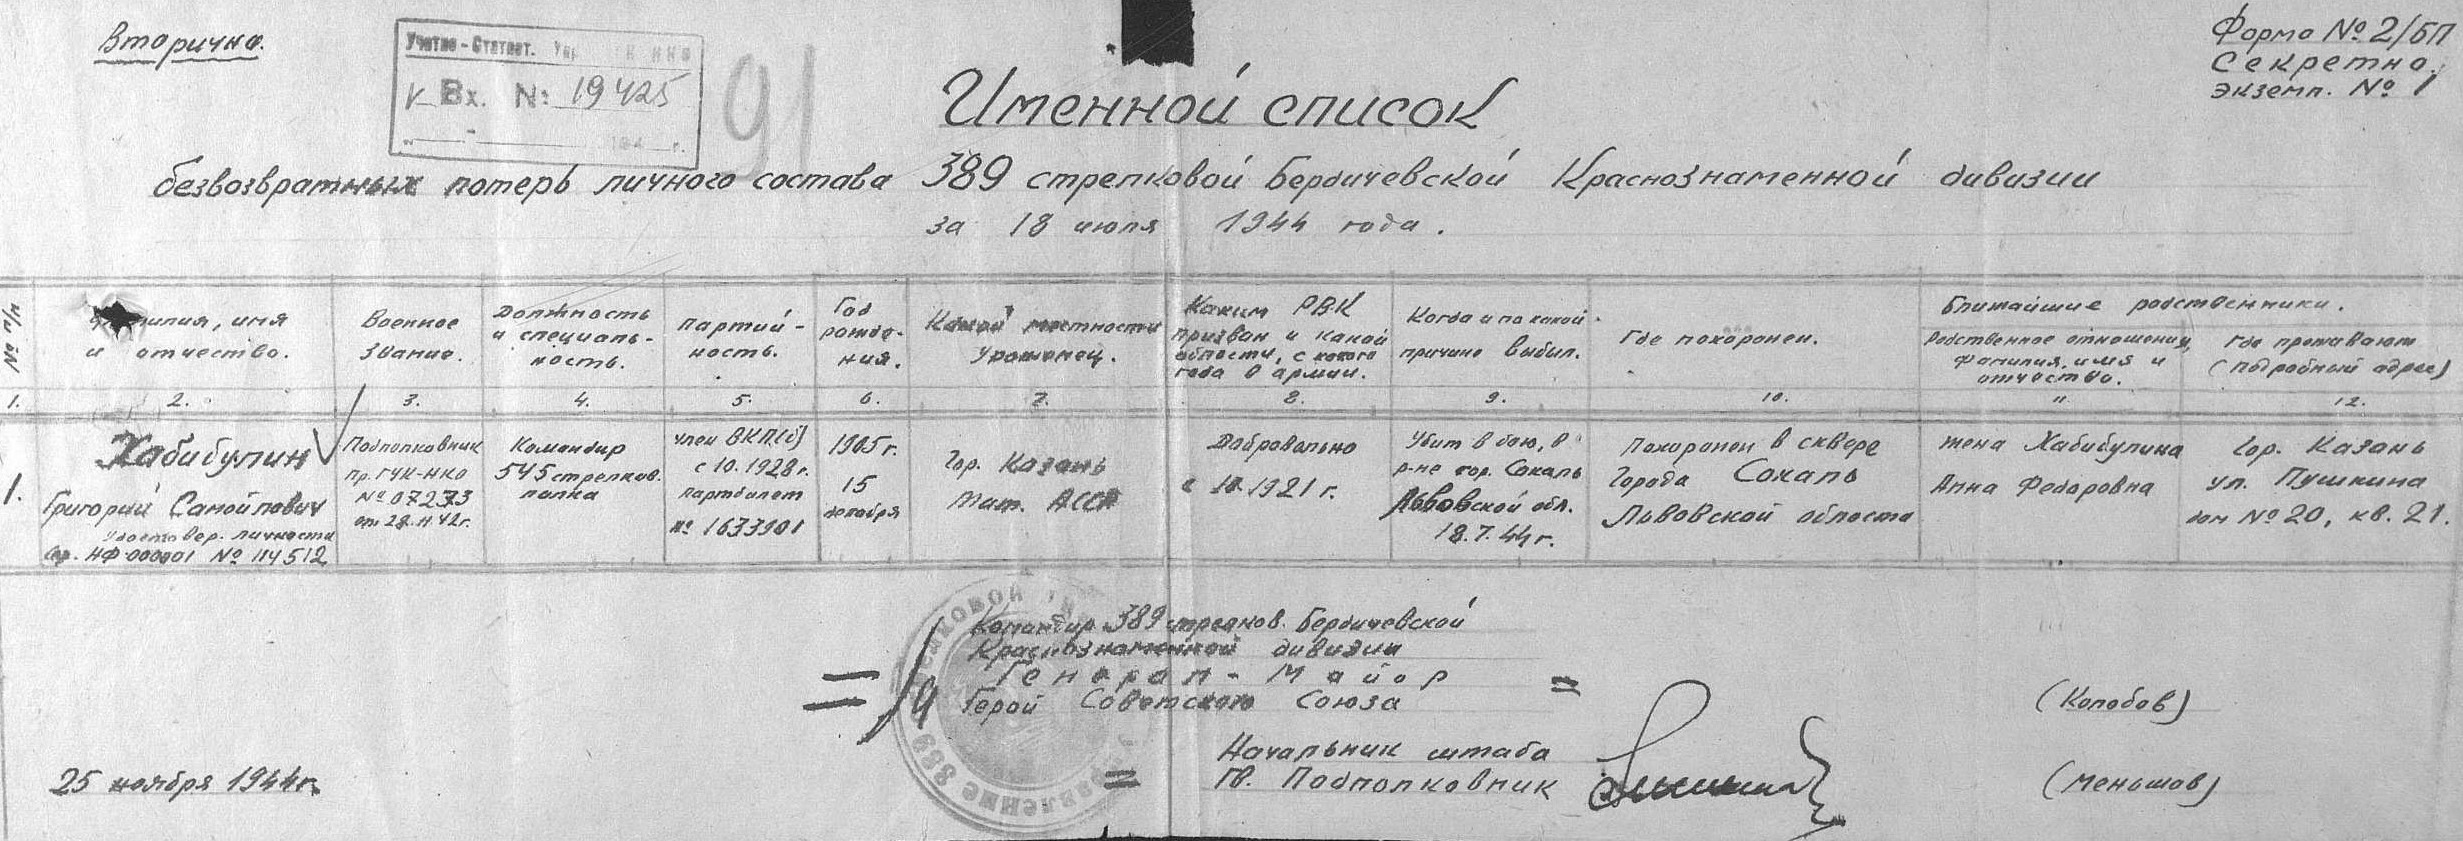 Вторично.
Учетно-Статист.
Вх. № 19425
194 г.
91
Форма № 2/БП
Секретно.
Экземп. № 1
Именной список
безвозвратных потерь личного состава 389 стрелковой Бердичевской Краснознаменной дивизии
за 18 июля 1944 года.
№ п/п
Фамилия, имя
и отчество.
Военное
звание.
Должность
и специаль-
ность.
Партий-
ность.
Год
рожде-
ния.
Какой местности
Уроженец.
Каким РВК
призван и какой
области, с какого
года в армии.
Когда и по какой
причине выбыл.
Где похоронен.
Ближайшие родственники.
Родственное отношение,
фамилия, имя и
отчество.
Где проживают
(подробный адрес)
1. 2. 3. 4. 5. 6. 7. 8. 9. 10. 11 12.
1.
Хабибулин
Григорий Самойлович
Удостовер. личности
сер. НФ-000001 № 114512
Подполковник
пр. ГУК-НКО
№ 07273
от 28.11.42г.
Командир
545 стрелков.
полка
член ВКП(б)
с 10.1928г.
партбилет
№ 1633901
1905г.
15
декабря
Гор. Казань
Тат. АССР
Добровольно
с 10.1921г.
Убит в бою, в
р-не гор. Сокаль
Львовской обл.
18.7.44г.
Похоронен в сквере
Города Сокаль
Львовской области
жена Хабибулина
Анна Федоровна
Гор. Казань
ул. Пушкина
дом № 20, кв. 21.
Командир 389 стрелков. Бердичевской
Краснознаменной дивизии
Генерал-Майор
Герой Советского Союза
(Колобов)
Начальник штаба
Гв. Подполковник
(Меньшов)
25 ноября 1944г.